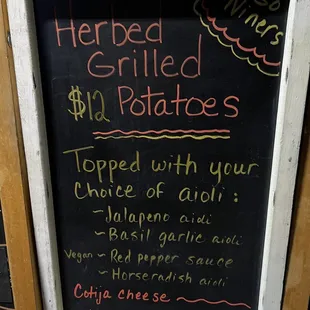 Go
Niners
Herbed
Grilled
$12 Potatoes
Topped with your
Choice of aioli:
~Jalapeno aioli
~Basil garlic aioli
Vegan ~ Red pepper sauce
~Horseradish aioli
Cotija cheese